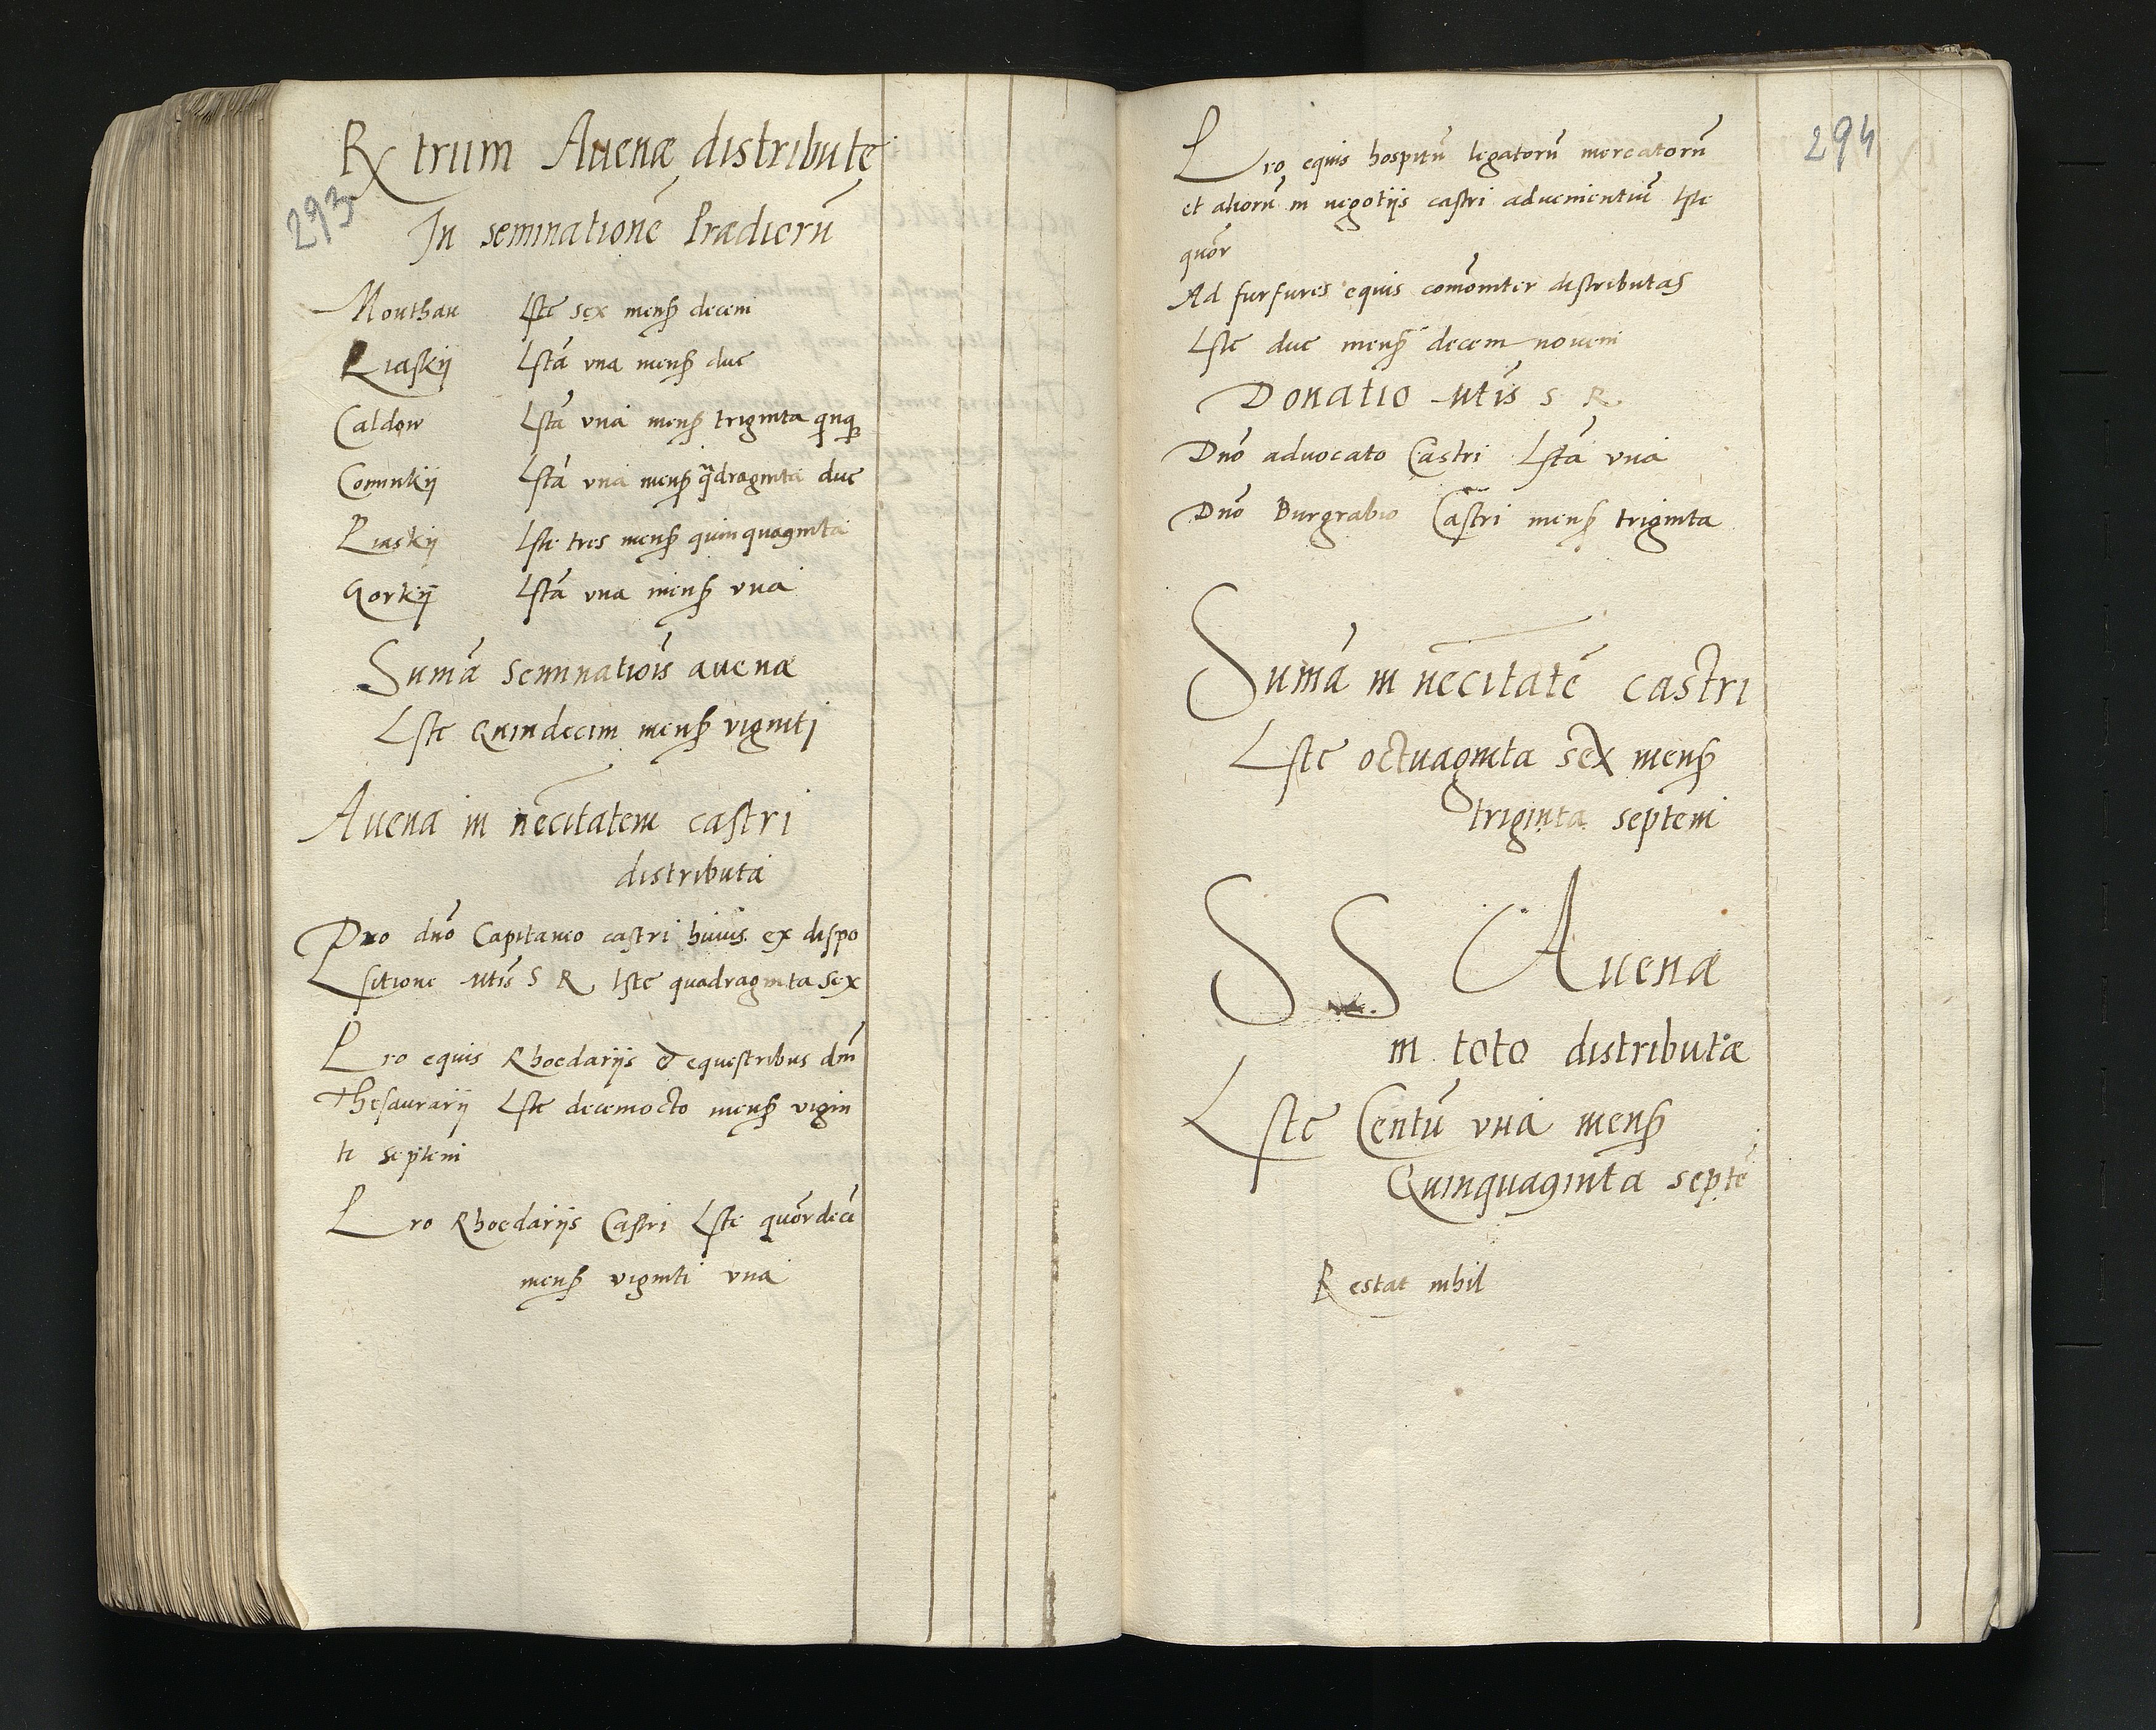 Rx trum Auenæ distribute
293
In seminationē Prædiorū
Mouthau Lste sex mens decem
Liaskij Lstā vna mens due
Caldow Lstā vna mens triginta qnq
Comnkij Lstā vna mens qdraginta due
Piaskij Lste tres mens quinquaginta
Gorkij Lstā vna mens vna
Sumā seminatiōis auenæ
Lste Quindecim mens viginti
Auena in necitatem castri
distributa
Pro dnō Capitaneo castri huius ex dispo
sitione Mtis S R Lste quadraginta sex
Pro equis Rhoedarijs et equestribus dni
Thesaurarij Lste decemocto mens vigin
ti septem
Pro Rhoedarijs Castri Lste quordecē
mens viginti vna
294
Pro equis hospitū legatorū mercatorū
et aliorū in negotijs castri aduenientiū Lste
quor
Ad furfures equis comōniter distributas
Lste due mens decem novem
Donatio Mtis S R
Dnō aduocato Castri Lstā vna
Dnō Burgrabio Castri mens triginta
Sumā in necitatē castri
Lste octuaginta sex mens
triginta septem
SS Auenæ
in toto distributæ
Lste Centū vna mens
Quinquaginta septē
Restat nihil